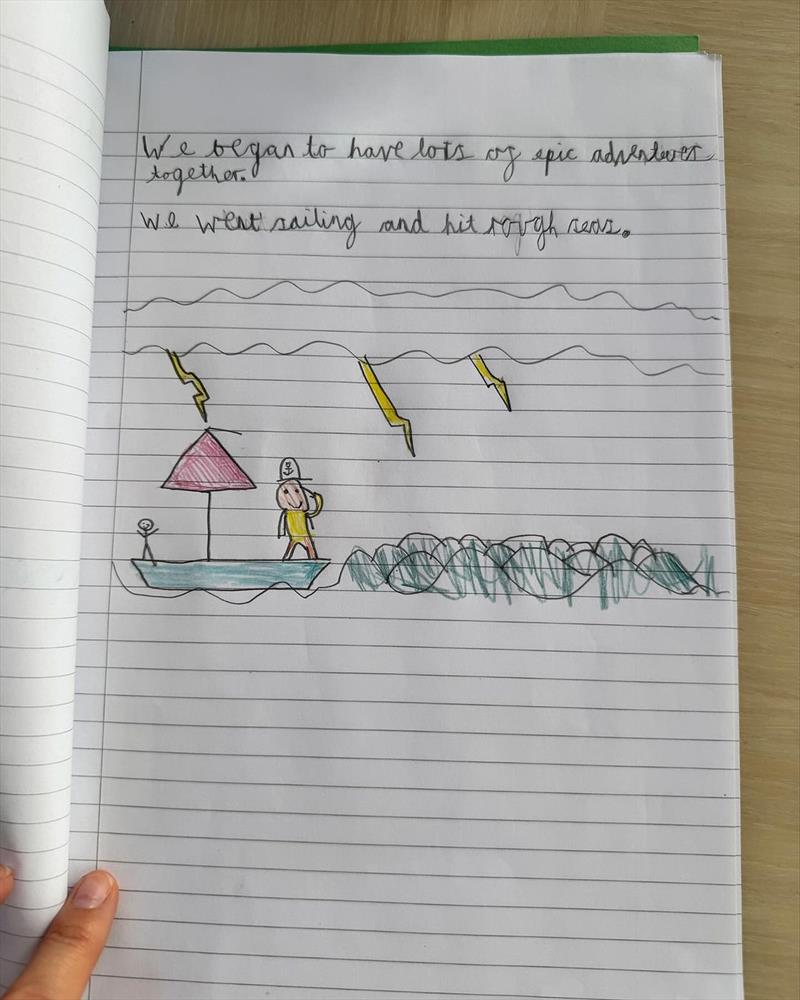 We began to have lots of epic adventures
together.
We went sailing and hit rough seas.